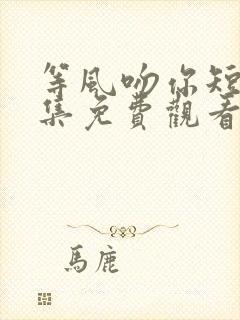 等風吻你短
集免費觀看
馬鹿